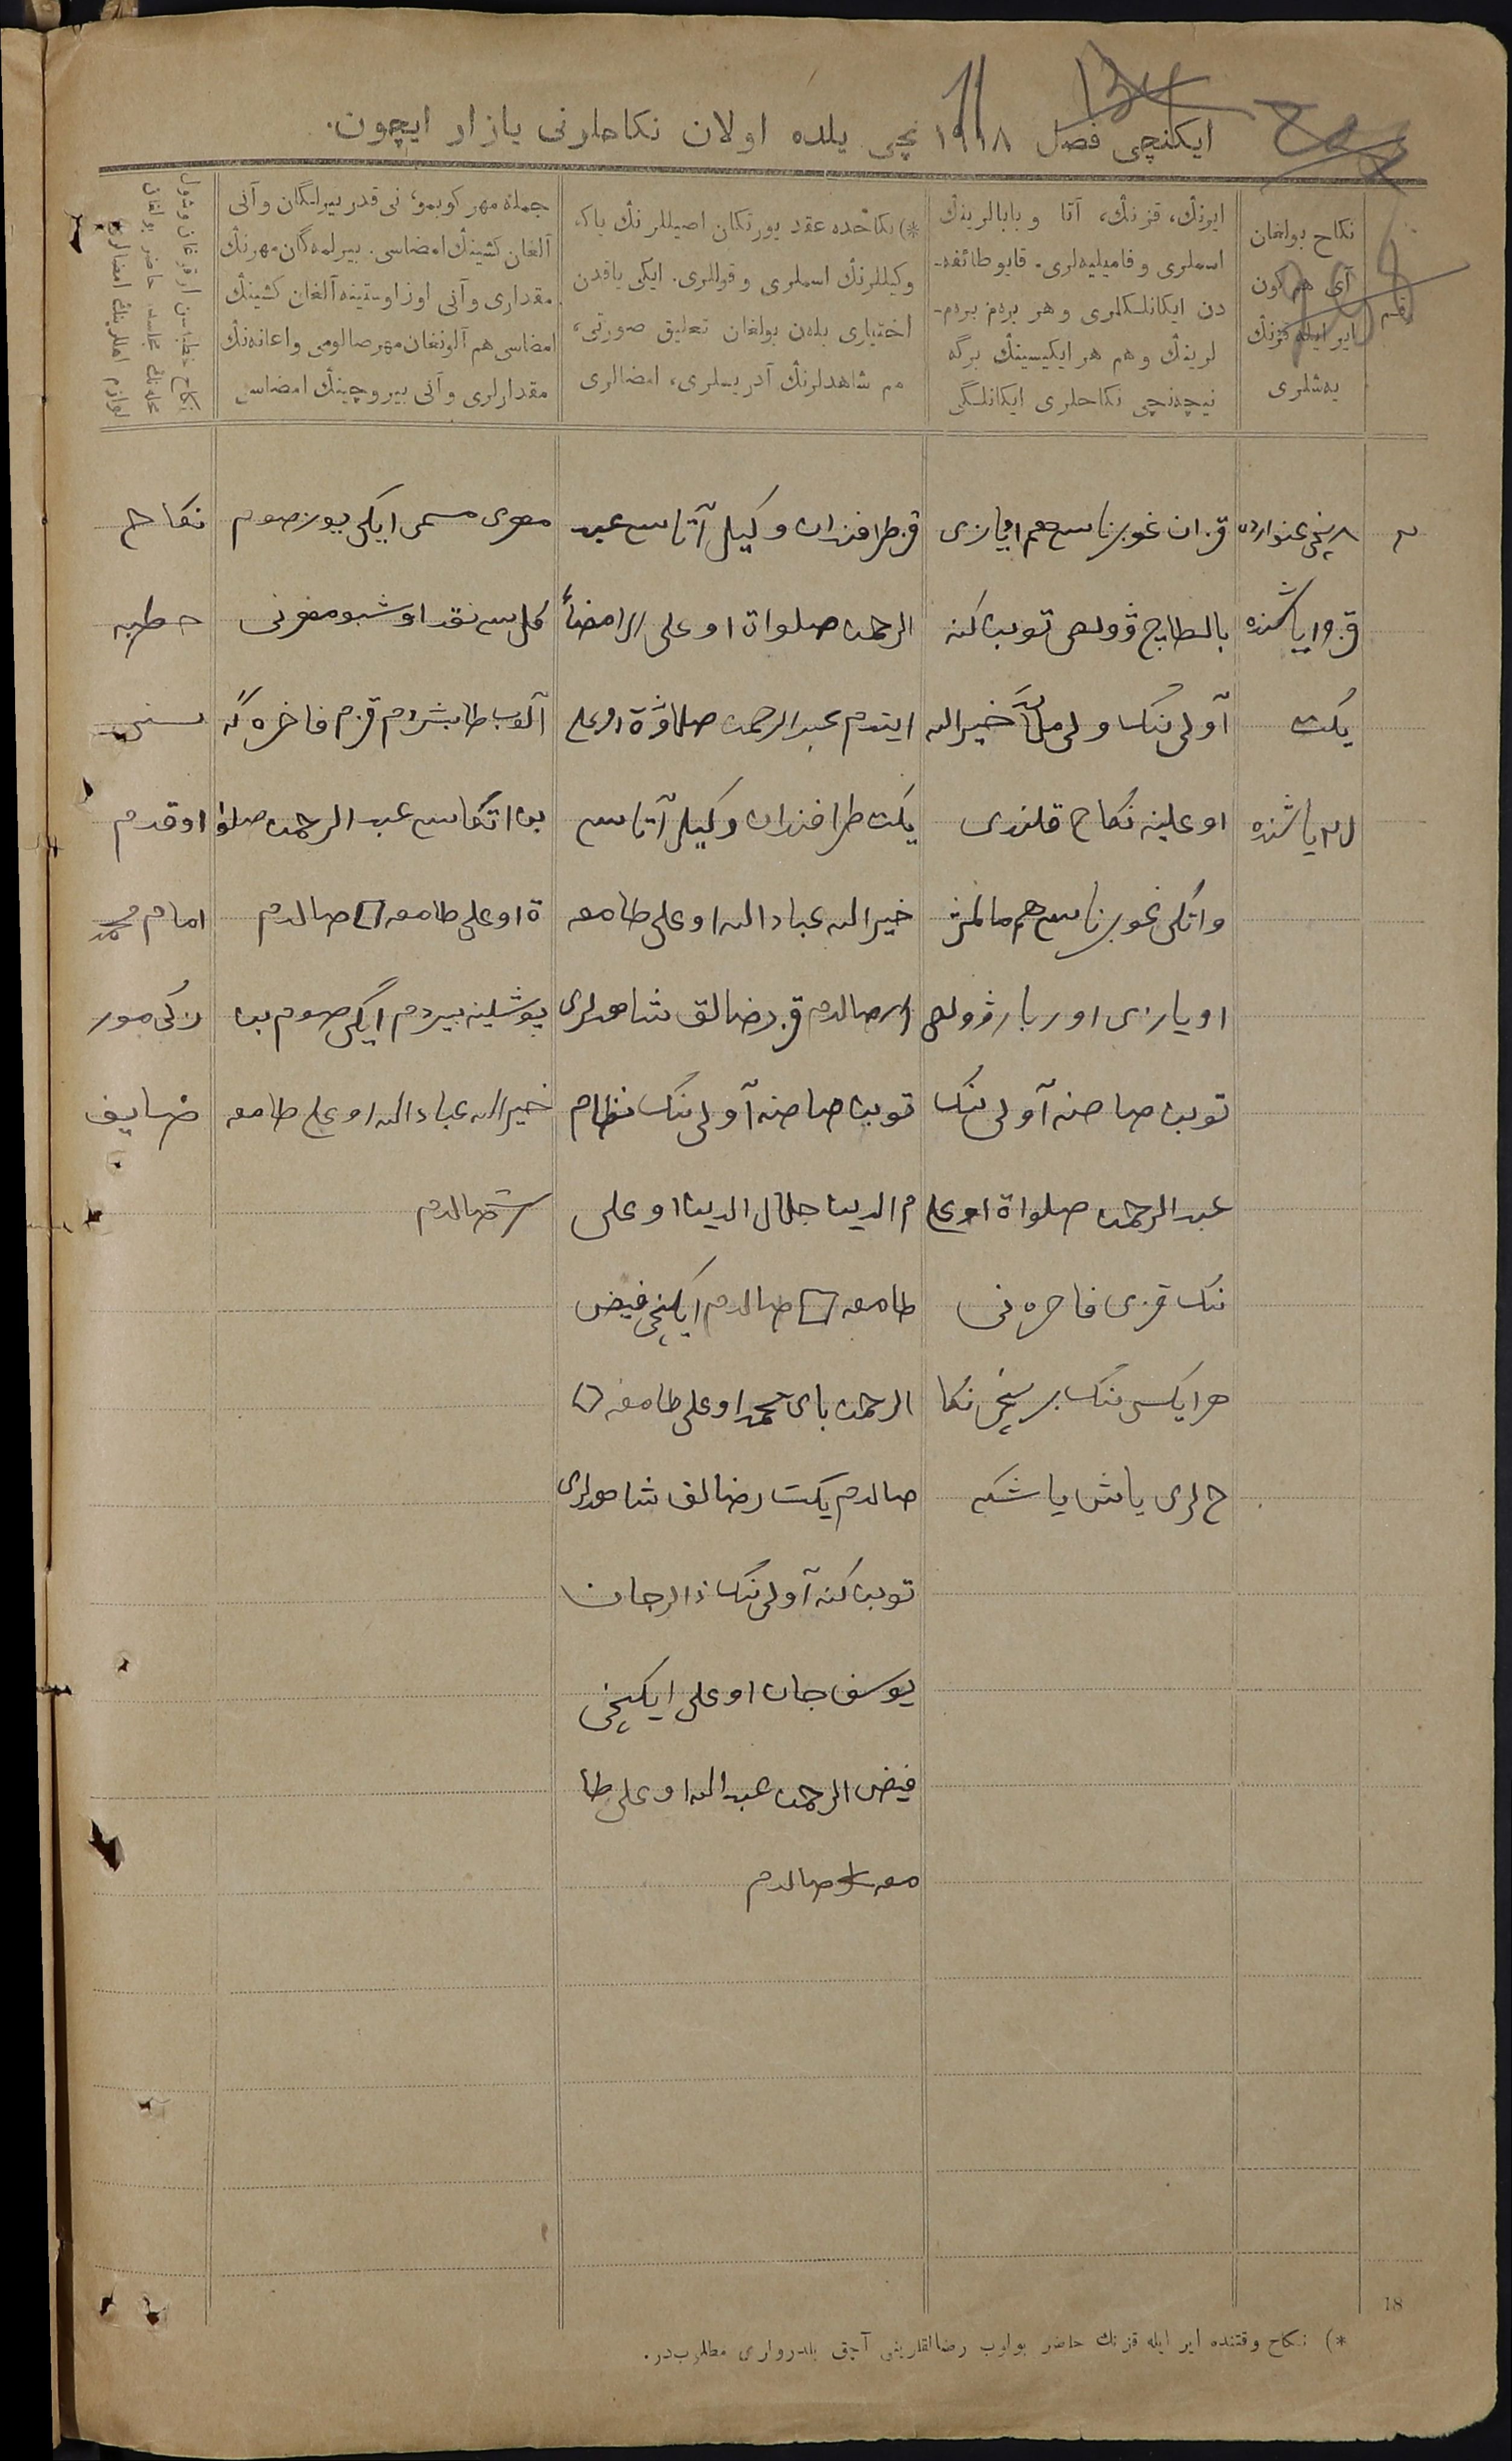 ایکنچی فصل ۱۹۱۸ نچی یلده اولان نكاحلرنی یازار ایچون.
رقم
نكاح بولغان
آی هم كون
ایر ایله قزنڭ
یەشلری
ایرنڭ، قزنڭ، آتا و بابالرینڭ
اسملری و فامیلیەلری. قایو طائفه-
دن ایكانلكلری و هر برەم برەم-
لرینڭ و هم هر ایكیسینڭ برگه
نیچەنچی نكاحلری ایكانلگی
*) نكاحده عقد یورتكان اصیللرنڭ یاكه
وكیللرنڭ اسملری و قوللری. ایكی یاقدن
اختیاری بلەن بولغان تعلیق صورتی،
هم شاهدلرنڭ آدریسلری، امضالری
جملهٔ مهر كوبمو، نی قدر بیرلگان و آنی
آلغان كشینڭ امضاسی. بیرلمەگان مهرنڭ
مقداری و آنی اوز اوستینه آلغان كشینڭ
امضاسی هم آلونغان مهر صالومی و اعانەنڭ
مقدارلری و آنی بیروچینڭ امضاسی
نكاح خطبەسن اوقوغان و شول
مجلسده حاضر بولغان
امضالری
۲
۸ نچی غنواردە
قز ۱۹ یاشندە
یكت
یاشندە
قزان غوبرناسی هم اویازی
بالطاچ ڤولصی توبان كنه
آولی ننك ولی ملا خیرالله
اوغلینه نكاح قلندی
واتكی غوبرناسی هم مالمژ
اویازی اور بار ڤولصی
توبان صاصنه آولی ننك
عبدالرحمن صلواة اوغلی
ننك قزی فاخرەنی
هر ایكسی ننك برنچی نكا
ح لری یاش یاشكه
قز طرافندان وكیل آتاسی عبد
الرحمن صلواة اوغلی امضأ
ایتدم عبدالرحمن صلاوة اوغلی
یكت طرافندان وكیل آتاسی
خیرالله عبادالله اوغلی طامغه
صالدم قز رضالق شاهدلری
توبان صاصنه آولی ننك نظام
م الدین جلال الدین اوغلی
طامغه □ صالدم ایكنچی فیض
الرحمن بای محمد اوغلی طامغه
صالدم یكت رضالق شاهدلری
توبان كنه آولی ننك ذالرجان
یوسف جان اوغلی ایكنچی
فیض الرحمن عبدالله اوغلی طا
مغه صالدم
مهری مسمی ایكی یوز صوم
كلسی نقد اوشبو مهرنی
آلوب طابشردم قزم فاخرەگه
بن اتكاسی عبدالرحمن صلوا
ة اوغلی طامغه □ صالدم
یوشلینه بیردم ایكی صوم بن
خیرالله عبادالله اوغلی طامغه
صالدم
نكاح
خطبه
سنی
اوقدم
امام محمد
زكی مور
ضایف
18
*) نكاح وقتنده ایر ایله قزنڭ حاضر بولوب رضالقلرینی آچق بلدرولری مطلوبدر.